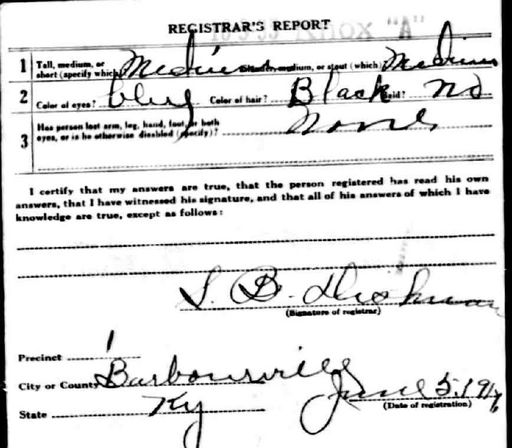 KNOX "A"
REGISTRAR'S REPORT
1 Tall, medium, or short (specify which) Medium Slender, medium, or stout (which) Medium
2 Color of eyes? blue Color of hair? Black Bald? no
3 Has person lost arm, leg, hand, foot, or both
eyes, or is he otherwise disabled (specify)? None
I certify that my answers are true, that the person registered has read his own
answers, that I have witnessed his signature, and that all of his answers of which I have
knowledge are true, except as follows:
S. B. Dishman
(Signature of registrar)
Precinct 1
City or County Barbourville
State Ky
June 5. 191
(Date of registration)